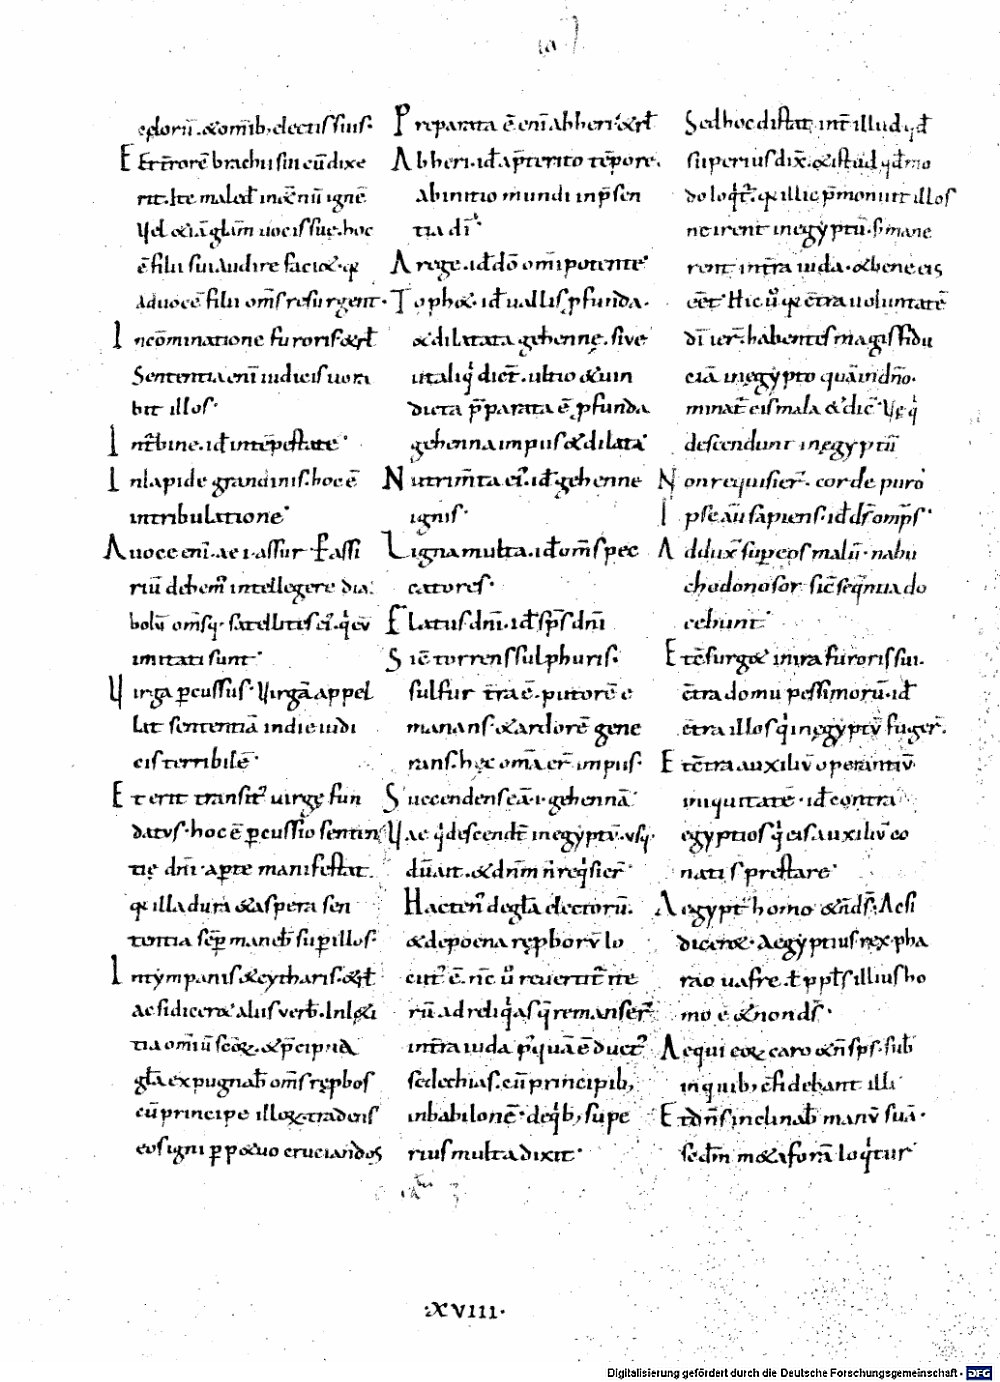 celorū̄. & om̄ib; electis suis·
Et t̄rorē brachii sui cū dixe
rit. Ite maled̄ in &̄nū ignē
Vel &iā glam̄ uocis suę. hoc
ē filii sui audire faci&. q̄
ad uocē filii om̄s resurgent·
In cōminatione furoris. & rł
Sententia eni iudicis uora
bit illos·
In t̄bine. id̄ in tēpestate·
In lapide grandinis. hoc ē
in tribulatione·
A uoce eni. ae ·i· assur Per assi
riū debem' intellegere dia
bolū om̄sq· satellites ei'. qi eū
imitati sunt·
Virga p̄cussus· Virgā appel
lat sententiā in die iudi
cii terribilē·
Et erit transit' uirgę fun
datus· hoc ē p̄cussio senten
tię dn̄i· ap̄te manifestat
q̄ illa dura & aspera sen
tentia sēp maneb̄ sup illos·
In tympanis & cytharis. & rł
ac si dicer& aliis uerb̄. In l&i
tia om̄iū sc̄oꝝ. & p̄cipua
gła expugnab̄ om̄s rępbos
cū principe illoꝝ tradens
eos igni p̄p&uo cruciandos
Preparata ē eni ab heri. & rł
Ab heri. id̄ a p̄terito tēpore.
ab initio mundi in p̄sen
tia di·
A rege. id̄ dō om̄ipotente·
Toph&. id̄ uallis p̄funda.
& dilatata gehenne. siue
ut aliqi dict̄. ultio & uin
dicta p̄parata ē p̄funda
gehenna impiis & dilata·
Nutrim̄ta ei'. id̄ gehenne
ignis·
Ligna multa. id̄ om̄s pec
catores·
Flatus dn̄i. id̄ sp̄s dn̄i
Sic torrens sulphuris.
sulfur t̄ra ē. putorē e
manans· & ardorē gene
rans. hęc om̄a er̄ impiis·
Succendens eā ·i· gehennā·
Vae qi descendt̄ in egyptū. usq·
dū ait. & dnm̄ n̄ reqisier̄
Hacten' de gła electorū.
& de poena rępborū lo
cut' ē. nc̄ u' reuertit̄ ite
rū ad reliqias q̄ remanser̄
intra iuda p'quā ē duct'
sedechias. cū principib;
in babilonē· de qib; supe
rius multa dixit·
Sed hoc distat int̄ illud qd̄
superius dix̄. & istud qd̄ mo
do loqit̄. q̄ illic p̄monuit illos
ne irent in egyptū. s; mane
rent intra iuda. & bene eis
eēt· Hic u' q̄ c̄tra uoluntatē
di ier̄. habentes magis fidu
ciā in egypto quā in dn̄o·
minat̄ eis mala & dic̄ Vę qi
descendunt in ęgyptū
Non requisier̄. corde puro
Ipse aū sapiens. id̄ ds̄ omp̄s·
Addux̄ sup eos malū. nabu
chodonosor sic̄ seqn̄tia do
cebunt·
Et c̄surg& in ira furoris sui.
c̄tra domū pessimorū. id̄
c̄tra illos qi in egyptū fuger̄.
Et c̄tra auxiliū operantiū
iniquitatē· id̄ contra
egyptios qi eis auxiliū co
nati s prestare·
Aegypt' homo & n̄ ds̄. Ac si
dicer&. Aegyptius rex pha
rao uafre. ł ppl's illius ho
mo ē & non ds̄·
Aequi eoꝝ caro & n̄ sp̄s. sub̄
in quib; c̄fidebant illi
Et dn̄s inclinab̄ manū suā·
sedm̄ m&aforā loqit̄ur
:XVIII·
Digitalisierung gefördert durch die Deutsche Forschungsgemeinschaft - DFG